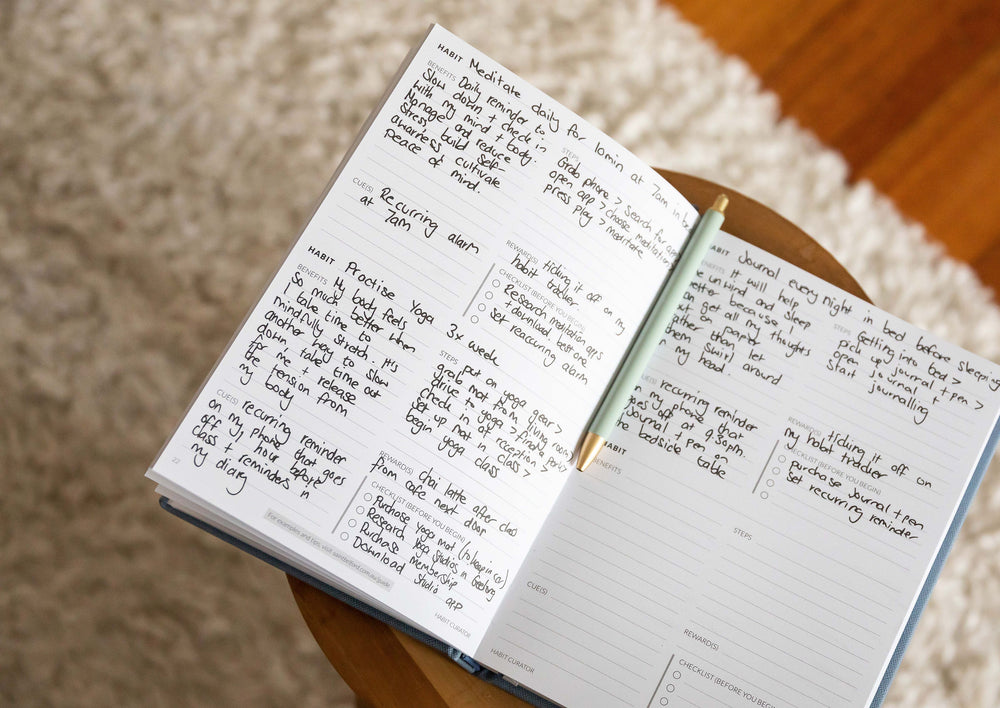 HABIT Meditate daily for 10min at 7am in
BENEFITS Daily reminder to
Slow down + check in
with my mind + body.
Manage and reduce
stress, build self-
awarness cultivate
peace of mind.
STEPS
Grab phone > search for
open app > choose meditation
press play > meditate
CUE(S) Recurring alarm
at 7am
REWARD(S) tiding it off on my
habit tracker
CHECKLIST (BEFORE YOU BEGIN)
Research meditation apps
+ download best one
set reaccuring alarm
HABIT Practise Yoga 3x week
BENEFITS My body feels
so much better when
I take time to
mindfully stretch. It's
another way to slow
down, take time out
for me + release
the tension from
my body
STEPS put on yoga gear >
grab mat from living room >
drive to yoga > find a park >
check in at reception >
set up mat in class >
begin yoga class
CUE(S) recurring reminder
on my phone that goes
off 1 hour before
class + reminders in
my diary
REWARD(S) chai latte after class
from cafe next door
CHECKLIST (BEFORE YOU BEGIN)
Purchase yoga mat (to keep in car)
Research yoga studios in Geelong
Purchase membership
Download studio app
22
For examples and tips, visit saintbelford.com.au/guide
HABIT CURATOR
HABIT Journal every night in bed before sleeping
BENEFITS It will help
me unwind and sleep
better because I
can get all my thoughts
out on paper
rather than let
them swirl around
in my head.
STEPS Getting into bed >
pick up journal + pen >
open journal +
start journalling
recurring reminder
on my phone that
goes off at 9.30pm.
Journal + pen on
the bedside table
REWARD(S) tiding it off on
my habit tracker
CHECKLIST (BEFORE YOU BEGIN)
purchase journal + pen
set recurring reminder
HABIT
BENEFITS
STEPS
CUE(S)
REWARD(S)
CHECKLIST (BEFORE YOU BEGIN)
HABIT CURATOR